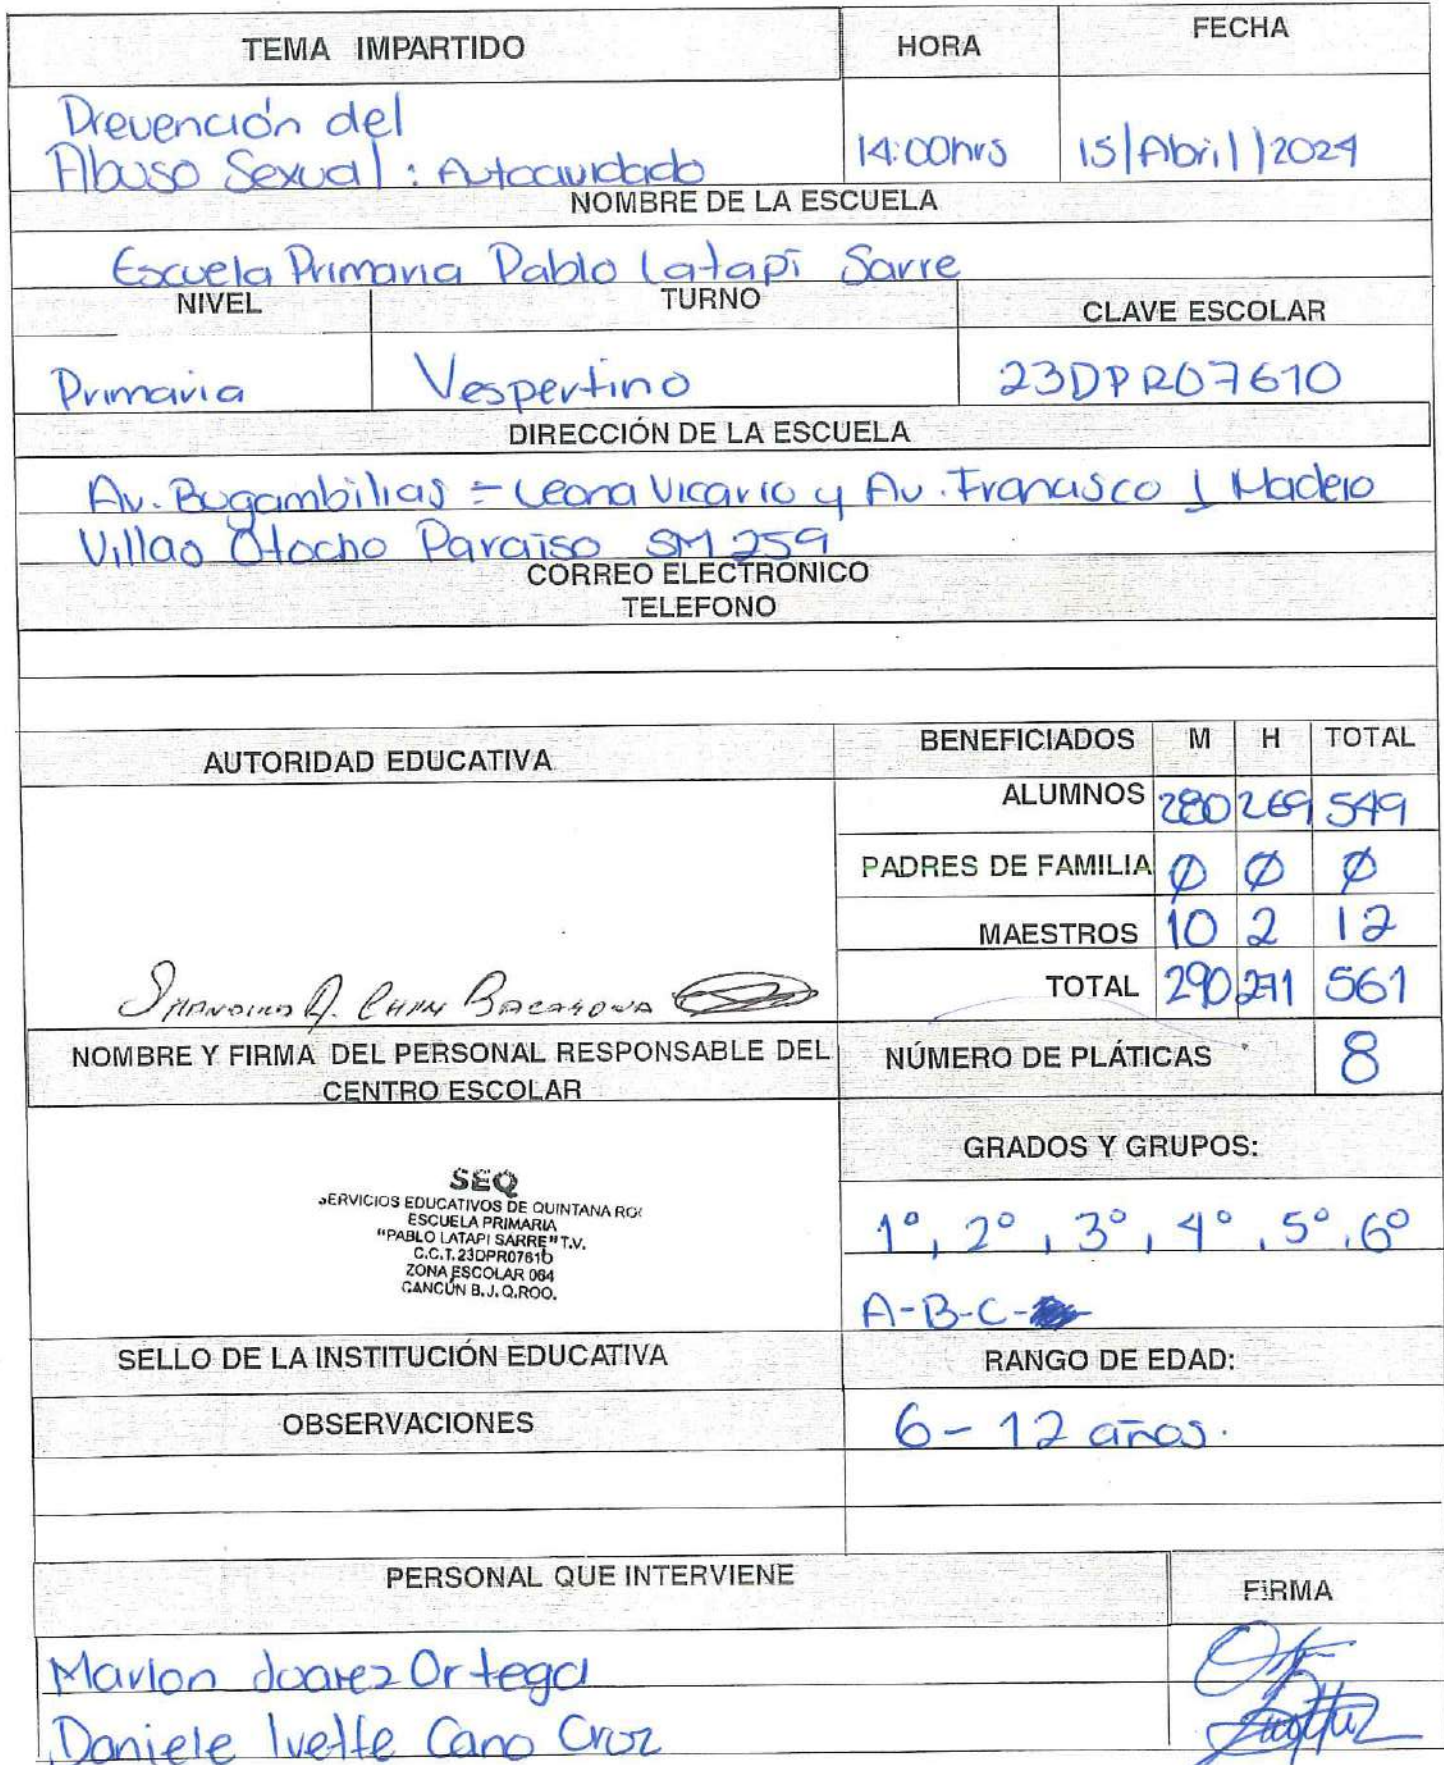 TEMA IMPARTIDO HORA FECHA
Prevención del
Abuso Sexual: Autocuidado 14:00hrs 15/Abril/2024
NOMBRE DE LA ESCUELA
Escuela Primaria Pablo Latapí Sarre
NIVEL TURNO CLAVE ESCOLAR
Primaria Vespertino 23DPR07610
DIRECCIÓN DE LA ESCUELA
Av. Bugambilias = Leona Vicario y Av. Francisco I Madero
Villas Otocho Paraíso SM 259
CORREO ELECTRÓNICO
TELEFONO
AUTORIDAD EDUCATIVA BENEFICIADOS M H TOTAL
ALUMNOS 280 269 549
PADRES DE FAMILIA Ø Ø Ø
MAESTROS 10 2 12
TOTAL 290 271 561
A. Chan
NOMBRE Y FIRMA DEL PERSONAL RESPONSABLE DEL
CENTRO ESCOLAR
NÚMERO DE PLÁTICAS 8
GRADOS Y GRUPOS:
1°, 2°, 3°, 4°, 5°, 6°
A-B-C-
SEQ
SERVICIOS EDUCATIVOS DE QUINTANA RO
ESCUELA PRIMARIA
"PABLO LATAPI SARRE" T.V.
C.C.T. 23DPR0761O
ZONA ESCOLAR 064
CANCÚN B.J. Q.ROO.
SELLO DE LA INSTITUCIÓN EDUCATIVA RANGO DE EDAD:
OBSERVACIONES 6-12 años.
PERSONAL QUE INTERVIENE FIRMA
Marlon Juarez Ortega
Daniele Ivette Cano Cruz